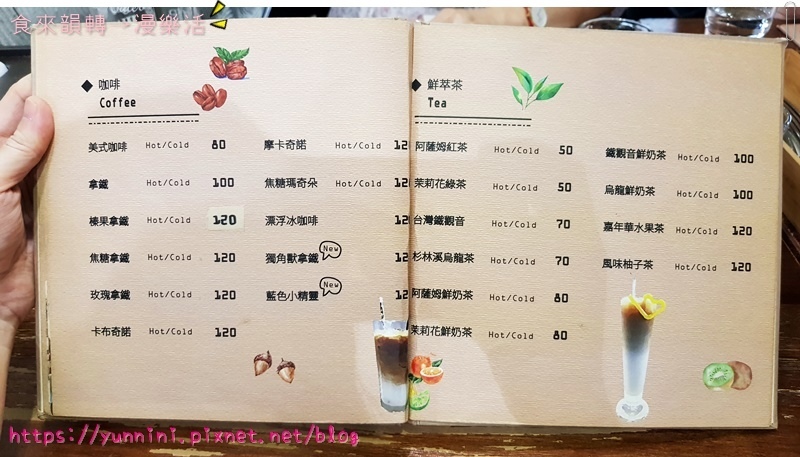 食來韻轉、漫樂活
咖啡
Coffee
美式咖啡 Hot/Cold 80
拿鐵 Hot/Cold 100
榛果拿鐵 Hot/Cold 120
焦糖拿鐵 Hot/Cold 120
玫瑰拿鐵 Hot/Cold 120
卡布奇諾 Hot/Cold 120
摩卡奇諾 Hot/Cold 12
焦糖瑪奇朵 Hot/Cold 12
漂浮冰咖啡 12
獨角獸拿鐵 New 12
藍色小精靈 New 12
鮮萃茶
Tea
阿薩姆紅茶 Hot/Cold 50
茉莉花綠茶 Hot/Cold 50
台灣鐵觀音 Hot/Cold 70
杉林溪烏龍茶 Hot/Cold 70
阿薩姆鮮奶茶 Hot/Cold 80
茉莉花鮮奶茶 Hot/Cold 80
鐵觀音鮮奶茶 Hot/Cold 100
烏龍鮮奶茶 Hot/Cold 100
嘉年華水果茶 Hot/Cold 120
風味柚子茶 Hot/Cold 120
https://yunnini.pixnet.net/blog